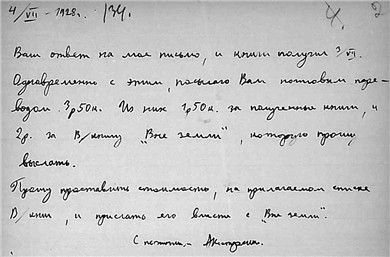 4/VII - 1928г. 134.
Ваш ответ на мое письмо, и книги получил 3/VII.
Одновременно с этим, посылаю Вам почтовым пере-
водом 3р50к. Из них 1р50к. за полученные книги, и
2р. за В/книгу "Вне земли", которую прошу
выслать.
Прошу проставить стоимость, на прилагаемом списке
В/книг, и прислать его вместе с "Вне земли".
С почтен.,-